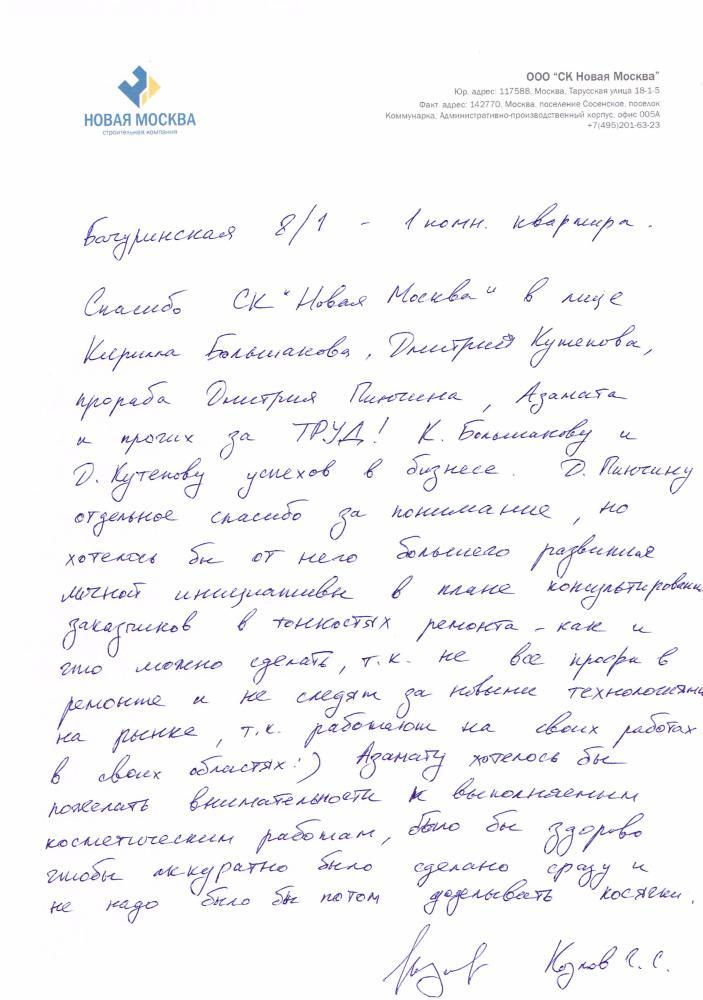 НОВАЯ МОСКВА
строительная компания
ООО "СК Новая Москва"
Юр. адрес: 117588, Москва, Тарусская улица 18-1-5
Факт. адрес: 142770, Москва, поселение Сосенское, поселок
Коммунарка, Административно-производственный корпус, офис 005А
+7(495)201-63-23
Бачуринская 8/1 - 1 комн. квартира.
Спасибо СК "Новая Москва" в лице
Кирилла Большакова, Дмитрия Кутепова,
прораба Дмитрия Пинчина, Азамата
и прочих за ТРУД! К. Большакову и
Д. Кутепову успехов в бизнесе. Д. Пинчину
отдельное спасибо за понимание, но
хотелось бы от него большего развития
личной инициативы в плане консультировани
заказчиков в тонкостях ремонта - как и
что можно сделать, т.к. не все профи в
ремонте и не следят за новыми технологиями
на рынке, т.к. работают на своих работах
в своих областях:) Азамату хотелось бы
пожелать внимательности к выполняемым
косметическим работам, было бы здорово
чтобы аккуратно было сделано сразу и
не надо было бы потом доделывать косяки.
Козлов С.